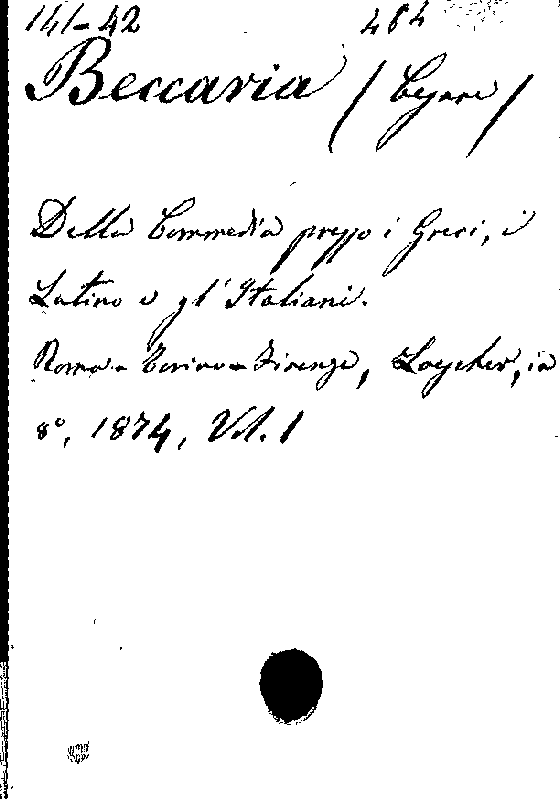 141-42 484
Beccaria / Cesare /
Della Commedia presso i Greci, i
Latino e gl' Italiani.
Roma - Torino - Firenze, Loescher, in
8º, 1874, Vol. 1